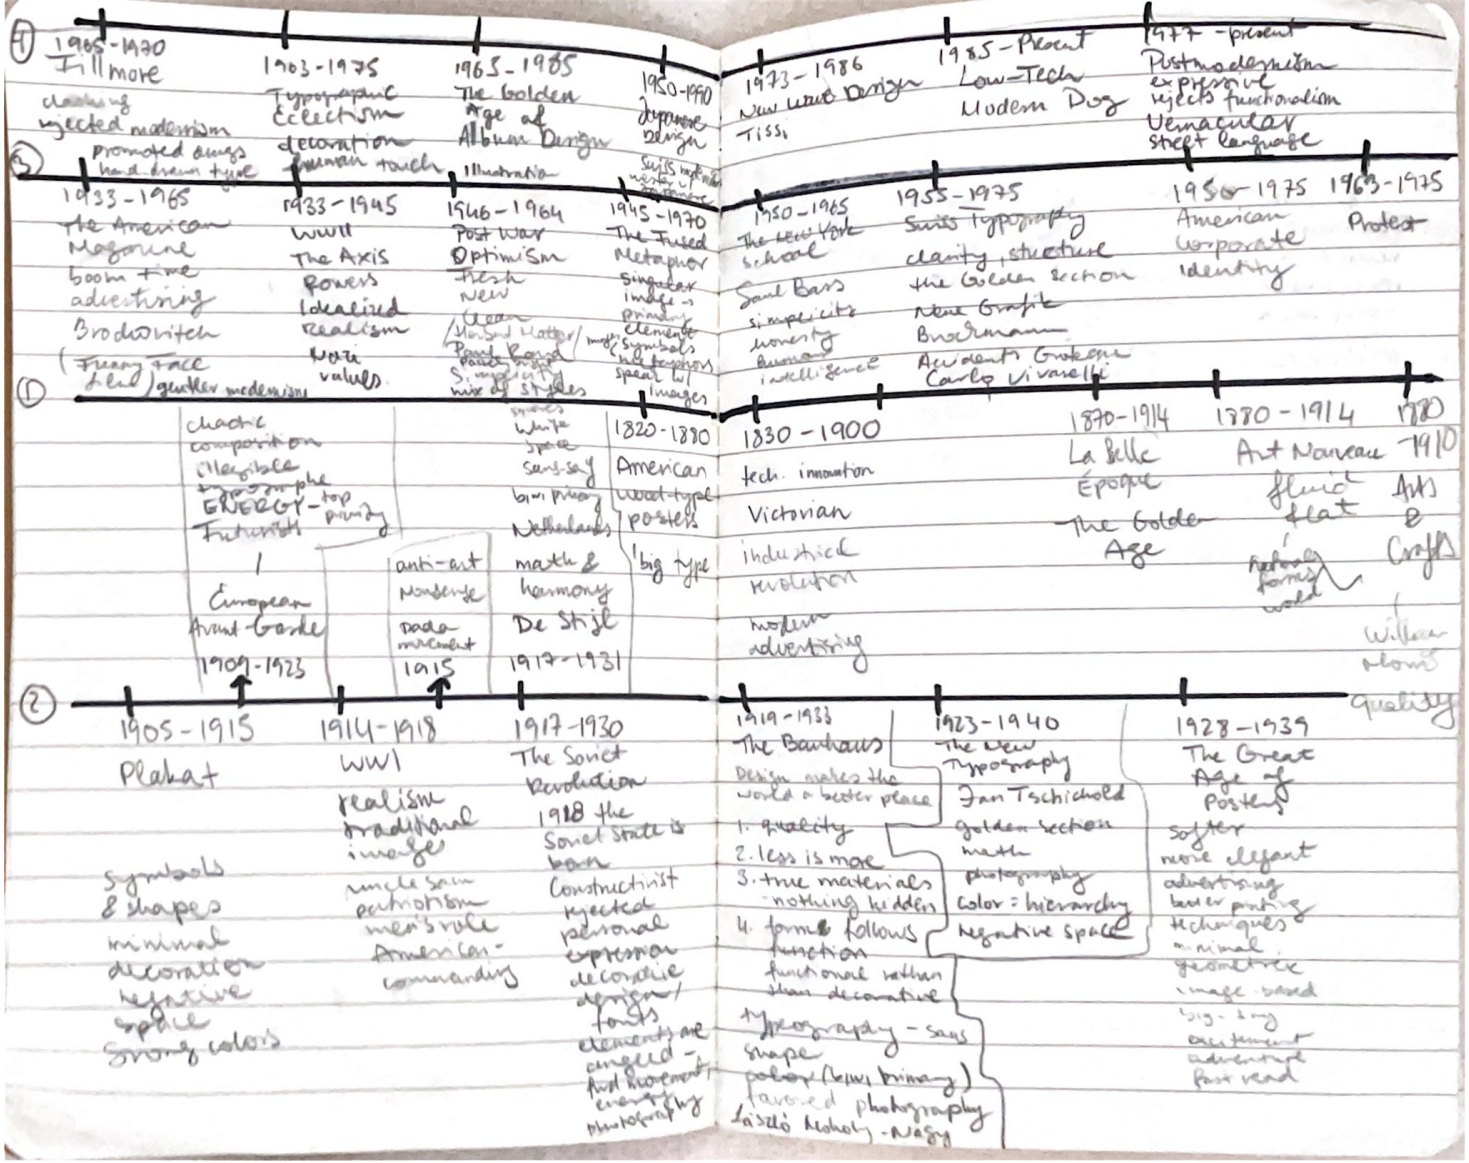 ④
1965-1970
Fillmore
clashing
rejected modernism
promoted drugs
hand drawn type
1963-1975
Typographic
Eclectism
decoration
human touch
1965-1985
The Golden
Age of
Album Design
Illustration
1950-1990
Japanese
Design
1973-1986
New Wave Design
Tissi
1985-Present
Low-Tech
Modern Dog
1977-present
Postmodernism
expressive
rejects functionalism
Vernacular
street language
③
1933-1965
The American
Magazine
boom time
advertising
Brodovitch
(Funny Face
film) gentler modernism
1933-1945
WWII
The Axis
Powers
Idealized
realism
Nazi
values
1946-1964
Post War
Optimism
Fresh
New
Clean
/Herbert Matter/
Paul Rand
Simplicity
mix of styles
1945-1970
The Fused
Metaphor
singular
image →
primary
element
symbols
metaphors
speak w/
images
1950-1965
The New York
school
Saul Bass
simplicity
honesty
human
intelligence
1955-1975
Swiss Typography
clarity, structure
the Golden Section
Neue Grafik
Brockmann
Accidents Grotesque
Carlo Vivarelli
1956-1975
American
Corporate
Identity
1963-1975
Protest
①
chaotic
composition
illegible
typographe
ENERGY-top
priority
Futurists
European
Avant-Garde
1909-1923
anti-art
Nonsense
Dada
movement
1915
white
space
sans-
b/w primary
Netherlands
math &
harmony
De Stijl
1917-1931
1820-1880
American
wood-type
posters
big type
1830-1900
tech. innovation
Victorian
industrial
revolution
modern
advertising
1870-1914
La Belle
Époque
The Golden
Age
1880-1914
Art Nouveau
fluid
flat
natural
forms
world
1880
-1910
Arts
&
Crafts
William
Morris
quality
②
1905-1915
Plakat
symbols
& shapes
minimal
decoration
negative
space
strong colors
1914-1918
WWI
realism
traditional
images
uncle sam
patriotism
men's role
American-
commanding
1917-1930
The Soviet
Revolution
1918 the
Soviet State is
born
Constructivist
rejected
personal
expression
decorative
design/
fonts
elements are
angled -
movement,
energy
photography
1919-1933
The Bauhaus
Design makes the
world a better place
1. quality
2. less is more
3. true materials
-nothing hidden
4. forms follows
function
functional rathan
than decorative
typeography - sans
shape
color (b/w, primary)
favored photography
László Moholy-Nagy
1923-1940
The New
Typography
Jan Tschichold
golden section
math
photography
color = hierarchy
negative space
1928-1939
The Great
Age of
Posters
softer
more elegant
advertising
better printing
techniques
minimal
geometric
image-based
excitement
adventure
fast read